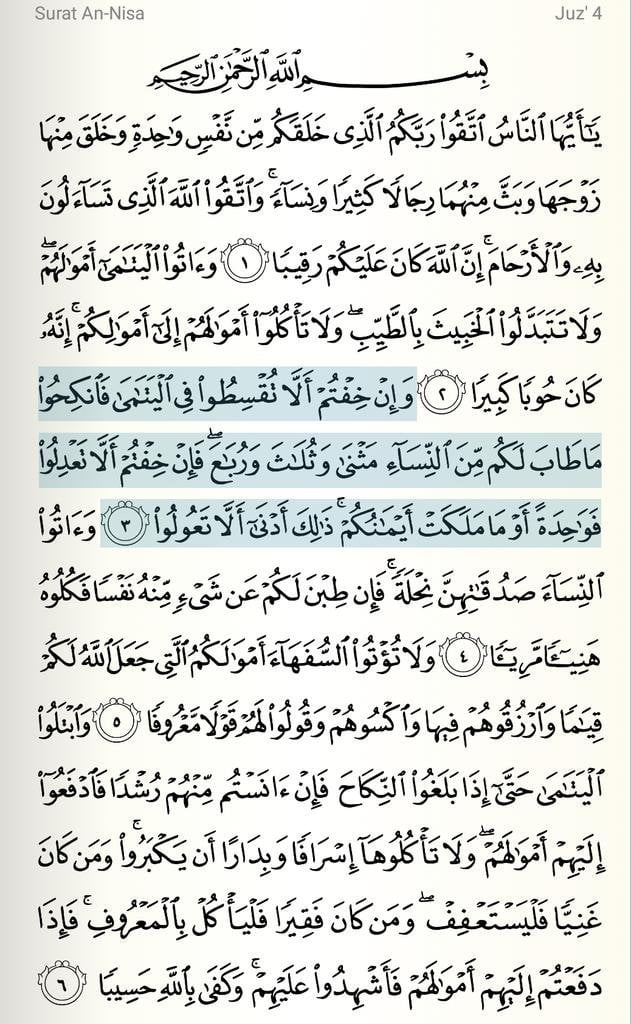 Surat An-Nisa
Juz' 4
بِسْمِ ٱللَّهِ ٱلرَّحْمَٰنِ ٱلرَّحِيمِ
يَٰٓأَيُّهَا ٱلنَّاسُ ٱتَّقُوا۟ رَبَّكُمُ ٱلَّذِى خَلَقَكُم مِّن نَّفْسٍ وَٰحِدَةٍ وَخَلَقَ مِنْهَا
زَوْجَهَا وَبَثَّ مِنْهُمَا رِجَالًا كَثِيرًا وَنِسَآءً ۚ وَٱتَّقُوا۟ ٱللَّهَ ٱلَّذِى تَسَآءَلُونَ
بِهِۦ وَٱلْأَرْحَامَ ۚ إِنَّ ٱللَّهَ كَانَ عَلَيْكُمْ رَقِيبًا ١ وَءَاتُوا۟ ٱلْيَتَٰمَىٰٓ أَمْوَٰلَهُمْ ۖ
وَلَا تَتَبَدَّلُوا۟ ٱلْخَبِيثَ بِٱلطَّيِّبِ ۖ وَلَا تَأْكُلُوٓا۟ أَمْوَٰلَهُمْ إِلَىٰٓ أَمْوَٰلِكُمْ ۚ إِنَّهُۥ
كَانَ حُوبًا كَبِيرًا ٢ وَإِنْ خِفْتُمْ أَلَّا تُقْسِطُوا۟ فِى ٱلْيَتَٰمَىٰ فَٱنكِحُوا۟
مَا طَابَ لَكُم مِّنَ ٱلنِّسَآءِ مَثْنَىٰ وَثُلَٰثَ وَرُبَٰعَ ۖ فَإِنْ خِفْتُمْ أَلَّا تَعْدِلُوا۟
فَوَٰحِدَةً أَوْ مَا مَلَكَتْ أَيْمَٰنُكُمْ ۚ ذَٰلِكَ أَدْنَىٰٓ أَلَّا تَعُولُوا۟ ٣ وَءَاتُوا۟
ٱلنِّسَآءَ صَدُقَٰتِهِنَّ نِحْلَةً ۚ فَإِن طِبْنَ لَكُمْ عَن شَىْءٍ مِّنْهُ نَفْسًا فَكُلُوهُ
هَنِيٓـًٔا مَّرِيٓـًٔا ٤ وَلَا تُؤْتُوا۟ ٱلسُّفَهَآءَ أَمْوَٰلَكُمُ ٱلَّتِى جَعَلَ ٱللَّهُ لَكُمْ
قِيَٰمًا وَٱرْزُقُوهُمْ فِيهَا وَٱكْسُوهُمْ وَقُولُوا۟ لَهُمْ قَوْلًا مَّعْرُوفًا ٥ وَٱبْتَلُوا۟
ٱلْيَتَٰمَىٰ حَتَّىٰٓ إِذَا بَلَغُوا۟ ٱلنِّكَاحَ فَإِنْ ءَانَسْتُم مِّنْهُمْ رُشْدًا فَٱدْفَعُوٓا۟
إِلَيْهِمْ أَمْوَٰلَهُمْ ۖ وَلَا تَأْكُلُوهَآ إِسْرَافًا وَبِدَارًا أَن يَكْبَرُوا۟ ۚ وَمَن كَانَ
غَنِيًّا فَلْيَسْتَعْفِفْ ۖ وَمَن كَانَ فَقِيرًا فَلْيَأْكُلْ بِٱلْمَعْرُوفِ ۚ فَإِذَا
دَفَعْتُمْ إِلَيْهِمْ أَمْوَٰلَهُمْ فَأَشْهِدُوا۟ عَلَيْهِمْ ۚ وَكَفَىٰ بِٱللَّهِ حَسِيبًا ٦